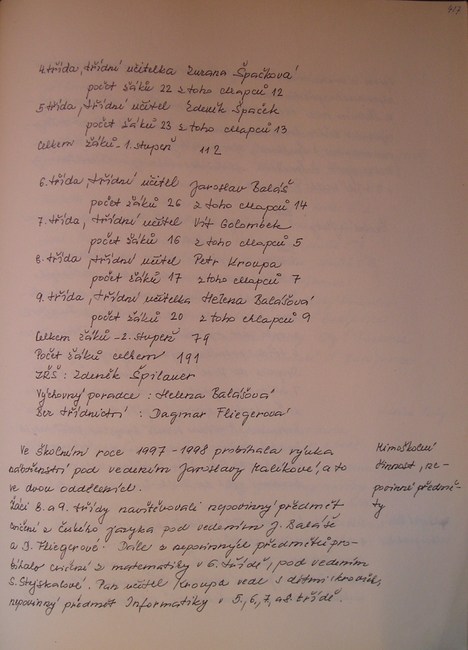 417
4. třída, třídní učitelka Zuzana Špačková
počet žáků 22 z toho chlapců 12
5. třída, třídní učitel Zdeněk Špaček
počet žáků 23 z toho chlapců 13
Celkem žáků - 1. stupeň 112
6. třída, třídní učitel Jaroslav Baláš
počet žáků 26 z toho chlapců 14
7. třída, třídní učitel Vít Golombek
počet žáků 16 z toho chlapců 5
8. třída, třídní učitel Petr Kroupa
počet žáků 17 z toho chlapců 7
9. třída, třídní učitelka Helena Balášová
počet žáků 20 z toho chlapců 9
Celkem žáků - 2. stupeň 79
Počet žáků celkem 191
ZŘŠ: Zdeněk Špilauer
Výchovný poradce: Helena Balášová
Bez třídnictví: Dagmar Fliegerová
Ve školním roce 1997-1998 probíhala výuka
náboženství pod vedením Jaroslavy Malíkové, a to
ve dvou odděleních.
Žáci 8. a 9. třídy navštěvovali nepovinný předmět
cvičení z českého jazyka pod vedením J. Baláše
a D. Fliegerové. Dále z nepovinných předmětů pro-
bíhalo cvičení z matematiky v 6. třídě, pod vedením
S. Stýskalové. Pan učitel Kroupa vede s dětmi
nepovinný předmět Informatiky v 5., 6., 7., a 8. třídě.
Mimoškolní
činnost, ne-
povinné předmě-
ty